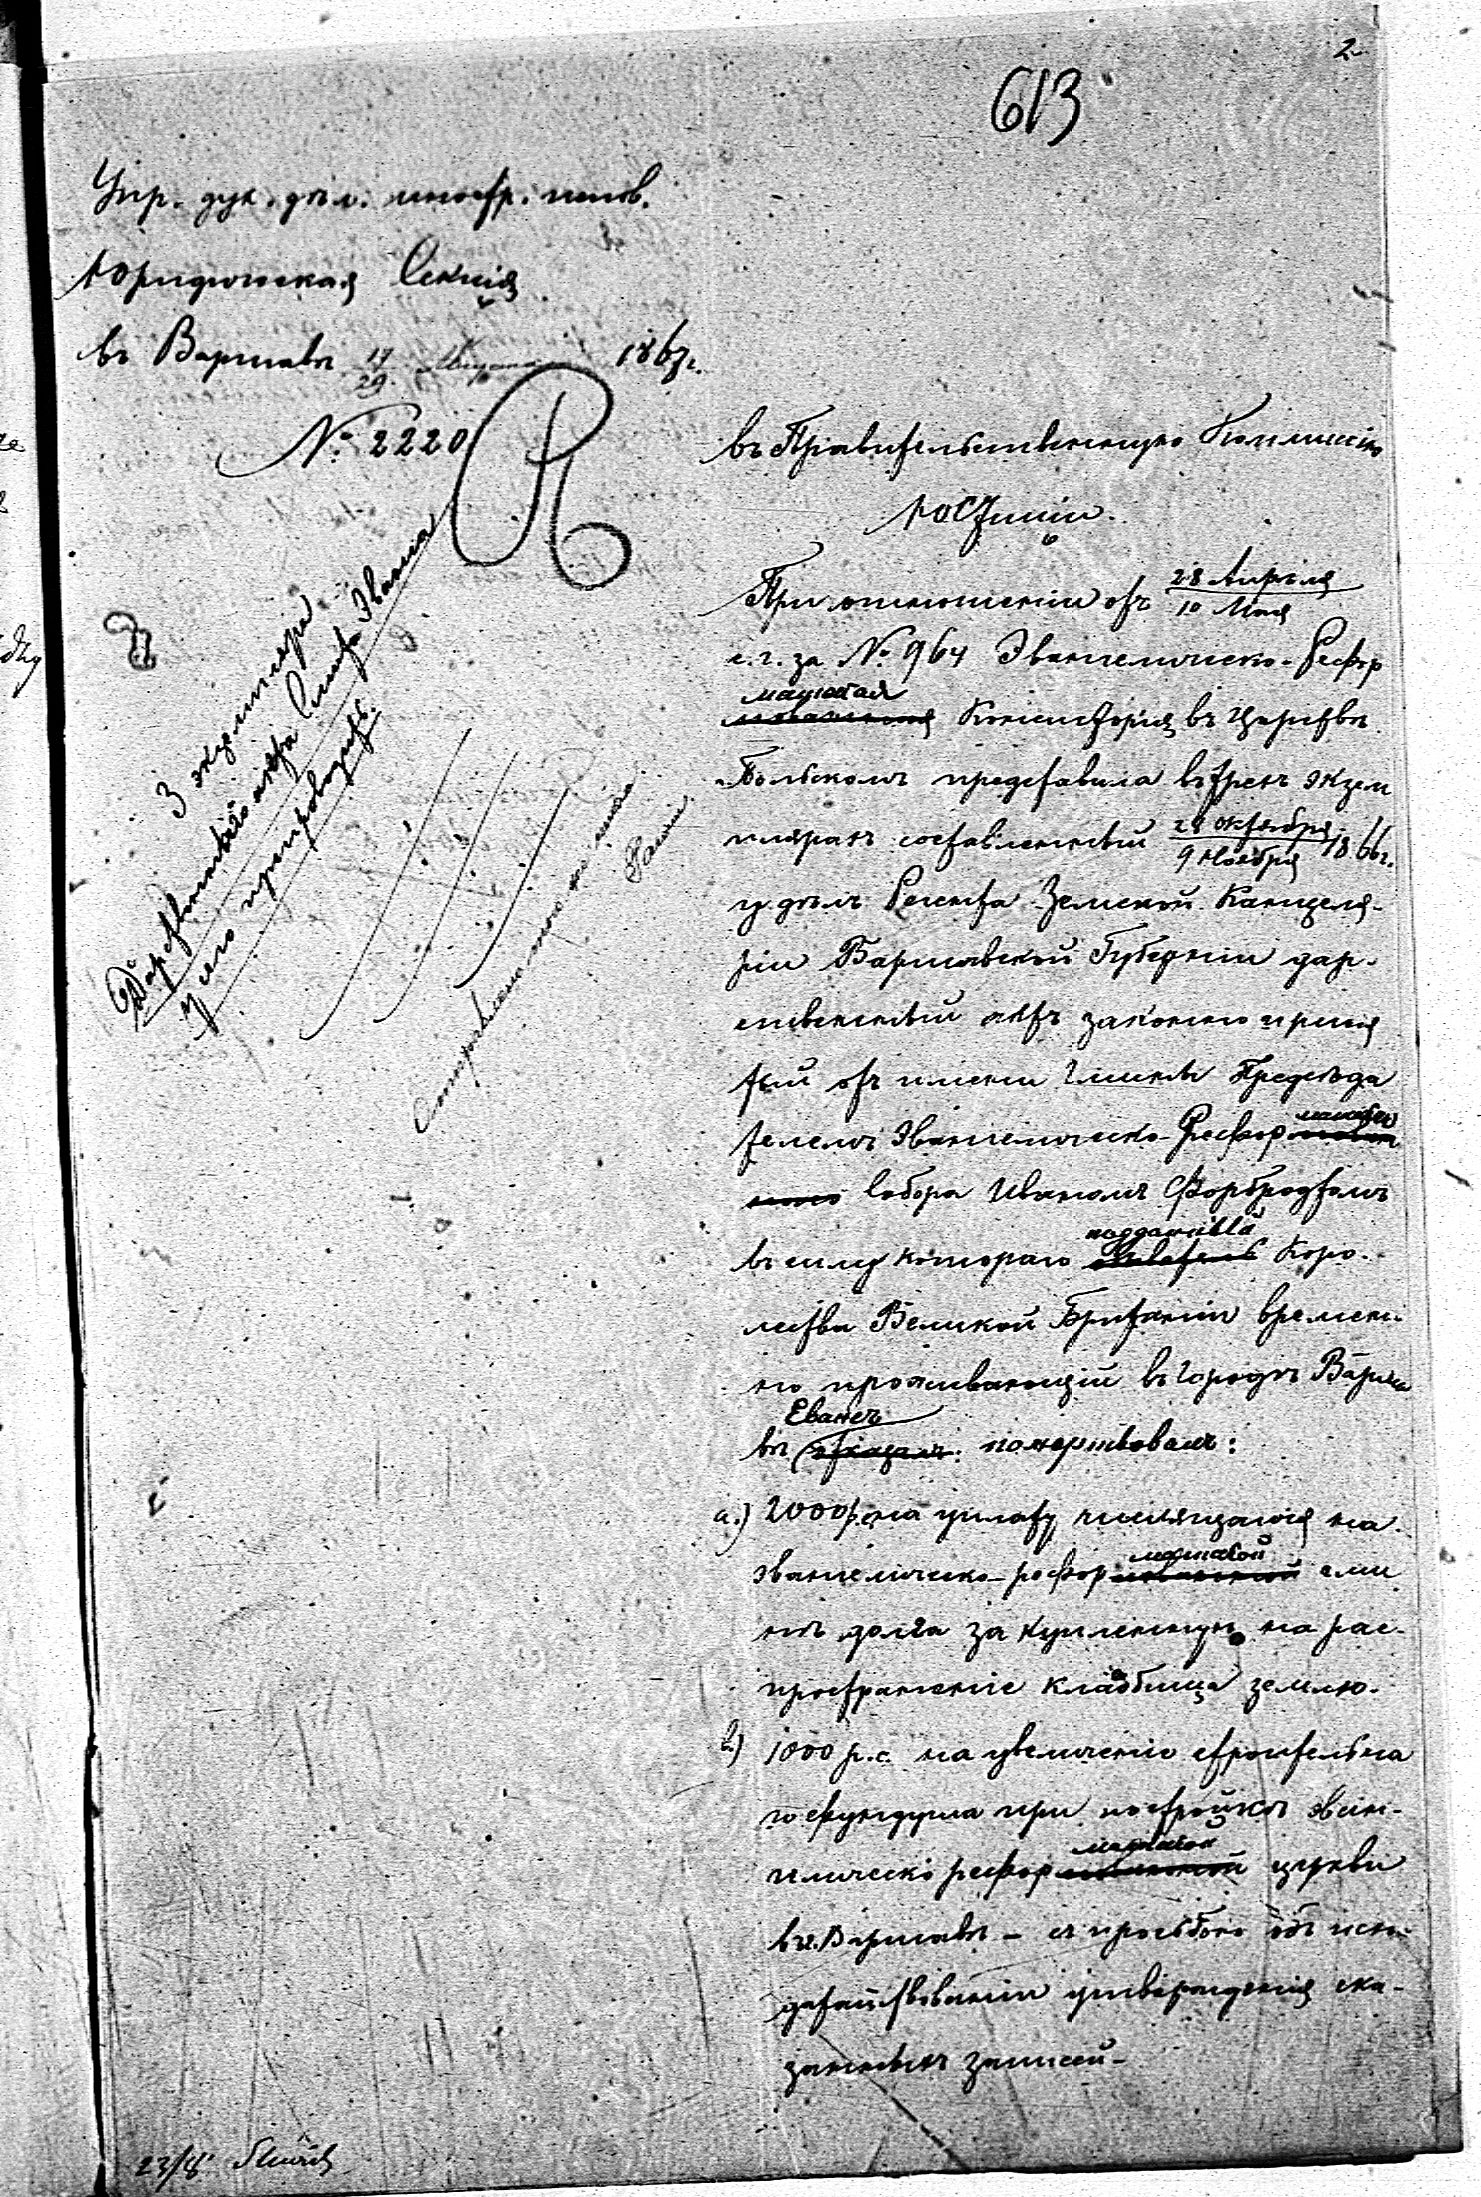 2
613
Упр. дух. дѣл. иностр. испов.
Юридическая Секція
въ Варшавѣ 17/29 1867г.
№ 2220
3 экземпляра
Дарственнаго акта Смита Эванса
у сего препроводить.
въ Правительственную Коммисію
Юстиціи.
При отношеніи отъ 28 Апрѣля / 10 Мая
с. г. за № 964 Эвангелическо-Рефор
матская
Консисторія въ Царствѣ
Польскомъ представила въ трехъ экзем
плярахъ составленный 28 Октября / 9 Ноября 1866г.
у дѣлъ Регента Земской Канцеля-
ріи Варшавской Губерніи дар-
ственный актъ законно приня
тый отъ имени Гмины Предсѣда
телемъ Эвангелическо-Рефор
Собора Иваномъ Форбродтомъ
въ силу котораго
подданный
Коро-
левства Великой Британіи времен-
но проживающій въ городѣ Варша
Евансъ
вѣ пожертвовалъ:
а.) 2000 р. на уплату числящагося на
эвангелическо-рефор
матской
гми
нѣ долга за купленную на рас-
пространеніе кладбища землю.
в.) 1000 р.с. на увеличеніе строительна
го фундуша при постройкѣ эван-
гелическо рефор
матской
церкви
въ г. Варшавѣ - съ просьбою объ исхо-
датайствованіи утвержденія ска-
занныхъ записей -
23/8